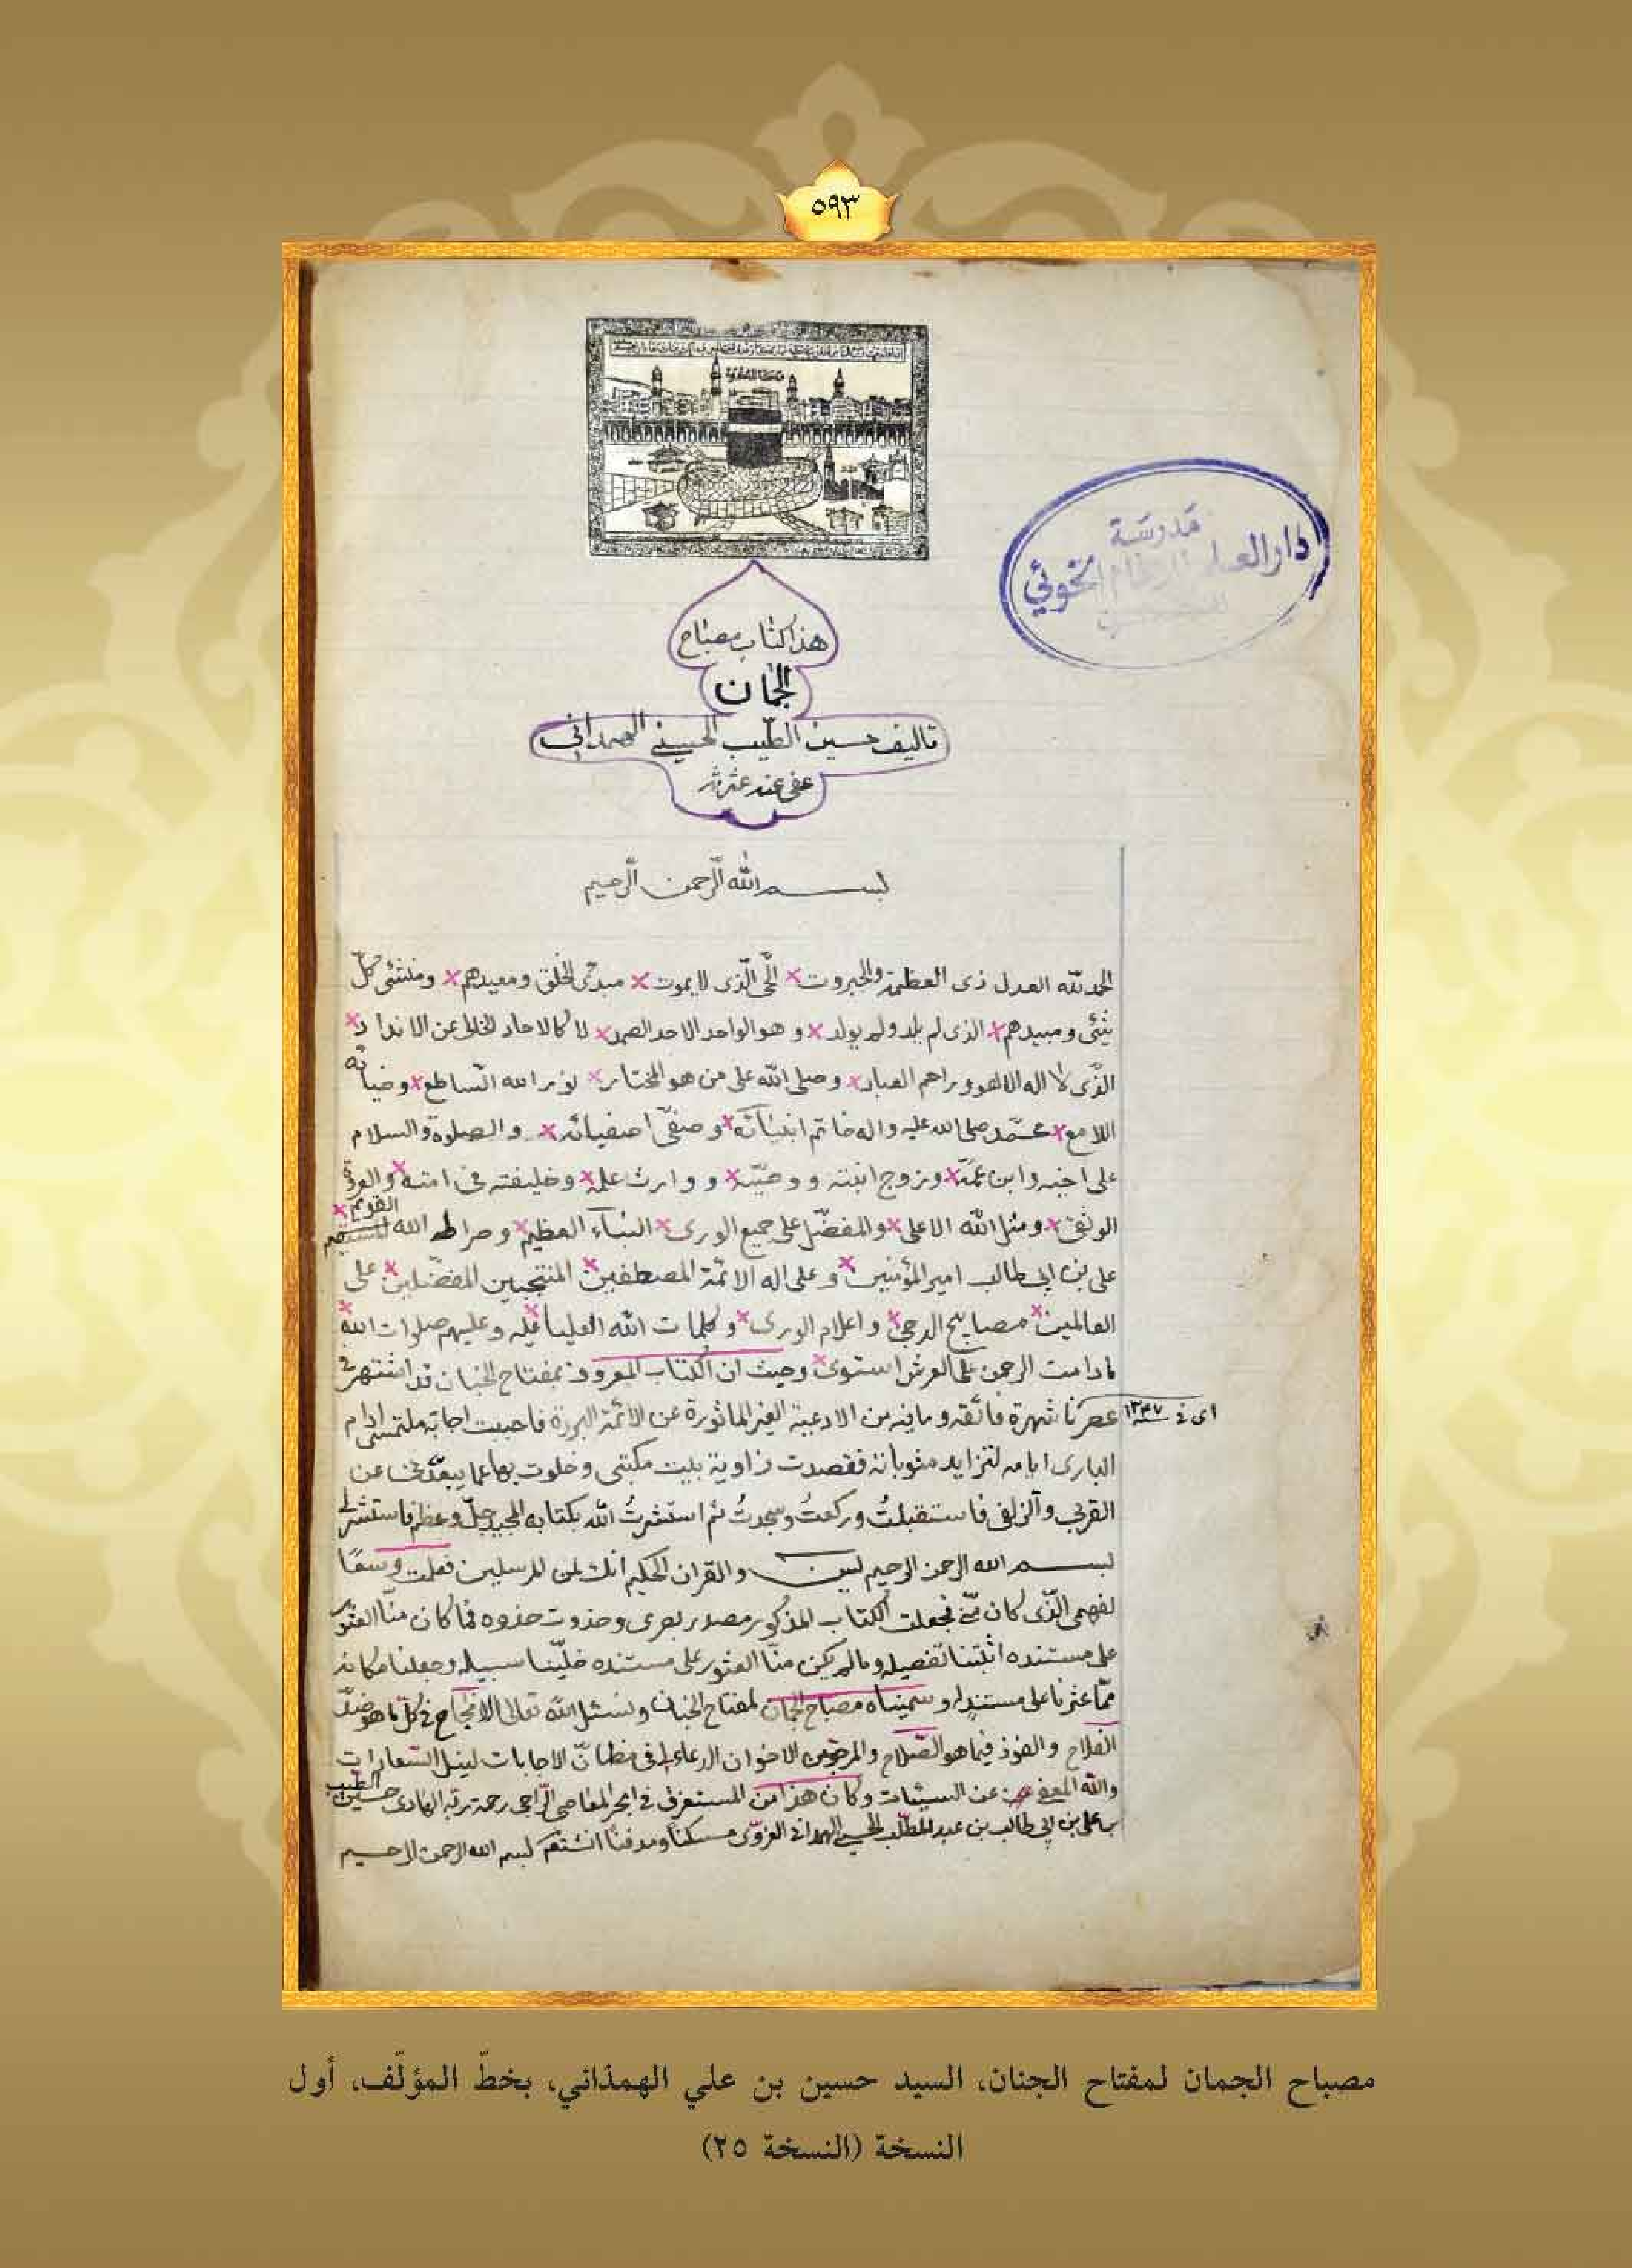 ٥٩٣
مكة المكرمة
مدرسة
دار العلم للإمام الخوئي
هذا كتاب مصباح
الجمان
تاليف حسين الطبيب الحسيني الهمداني
عفى عنه عثرته
بسم الله الرحمن الرحيم
الحمد لله العدل ذى العظمة والجبروت × الحى الذى لا يموت × مبدئ الخلق ومعيدهم × ومنشئ كل
شئ ومبيدهم × الذى لم يلد ولم يولد × و هو الواحد الاحد الصمد × لا كالاحاد الخلا عن الانداد ×
الذى لا اله الا هو وراحم العباد × وصلى الله على من هو المختار × نور الله الساطع × وضيائه
اللامع × محمد صلى الله عليه واله خاتم انبيائه × وصفى اصفيائه × والصلوة والسلام
على اخيه وابن عمه × وزوج ابنته ووصيه × ووارث علمه × وخليفته فى امته × والعروة
الوثقى × ومثل الله الاعلى × والمفضل على جميع الورى × النباء العظيم × وصراط الله المستقيم القويم ×
على بن ابى طالب امير المؤمنين × وعلى اله الائمة المصطفين × المنتجبين المفضلين × على
العالمين × مصابيح الدجى × واعلام الورى × وكلمات الله العليا × عليه وعليهم صلوات الله ×
مادامت الرحمن على العرش استوى × وحيث ان الكتاب المعروف بمفتاح الجنان قد اشتهر فى
عصرنا شهرة فائقة وما فيه من الادعية الغير الماثورة عن الائمة البررة فاحببت اجابة ملتمسى ادام
اى فى سنة ١٣٤٧
البارى ايامه لتزايد مثوباته فقصدت زاوية بيت مكتبى وخلوت بها عما يبعدنى عن
القربى والزلفى فاستقبلت وركعت وسجدت ثم استشرت الله بكتابه المجيد جل وعظم فاستشر لى
بسم الله الرحمن الرحيم يس والقران الحكيم انك لمن المرسلين فعلمت وسعا
لفهمى الذى كان منى فجعلت الكتاب المذكور مصدر بصرى وحذوت حذوه فما كان منا العثور
على مستنده اثبتنا تفصيله وما لم يكن منا العثور على مستنده خلينا سبيله وجعلنا مكانه
مما عثرنا على مستنده وسميناه مصباح الجمان لمفتاح الجنان ونسئل الله تعالى الانجاح فى كل ما هو ضد
الفلاح والفوذ فيما هو الصلاح والمرجو من الاخوان الدعاء لى فى مظان الاجابات لينل السعادات
والله المعفى عن السيئات وكان هذا من المستغرق فى ابحر المعاصى الراجى رحمة ربه الهادى حسين الطبيب
بن على بن ابى طالب بن عبد المطلب الحسينى الهمدانى الغروى مسكنا ومدفنا بسم الله الرحمن الرحيم
مصباح الجمان لمفتاح الجنان، السيد حسين بن علي الهمذاني، بخطّ المؤلّف، أول
النسخة (النسخة ٢٥)